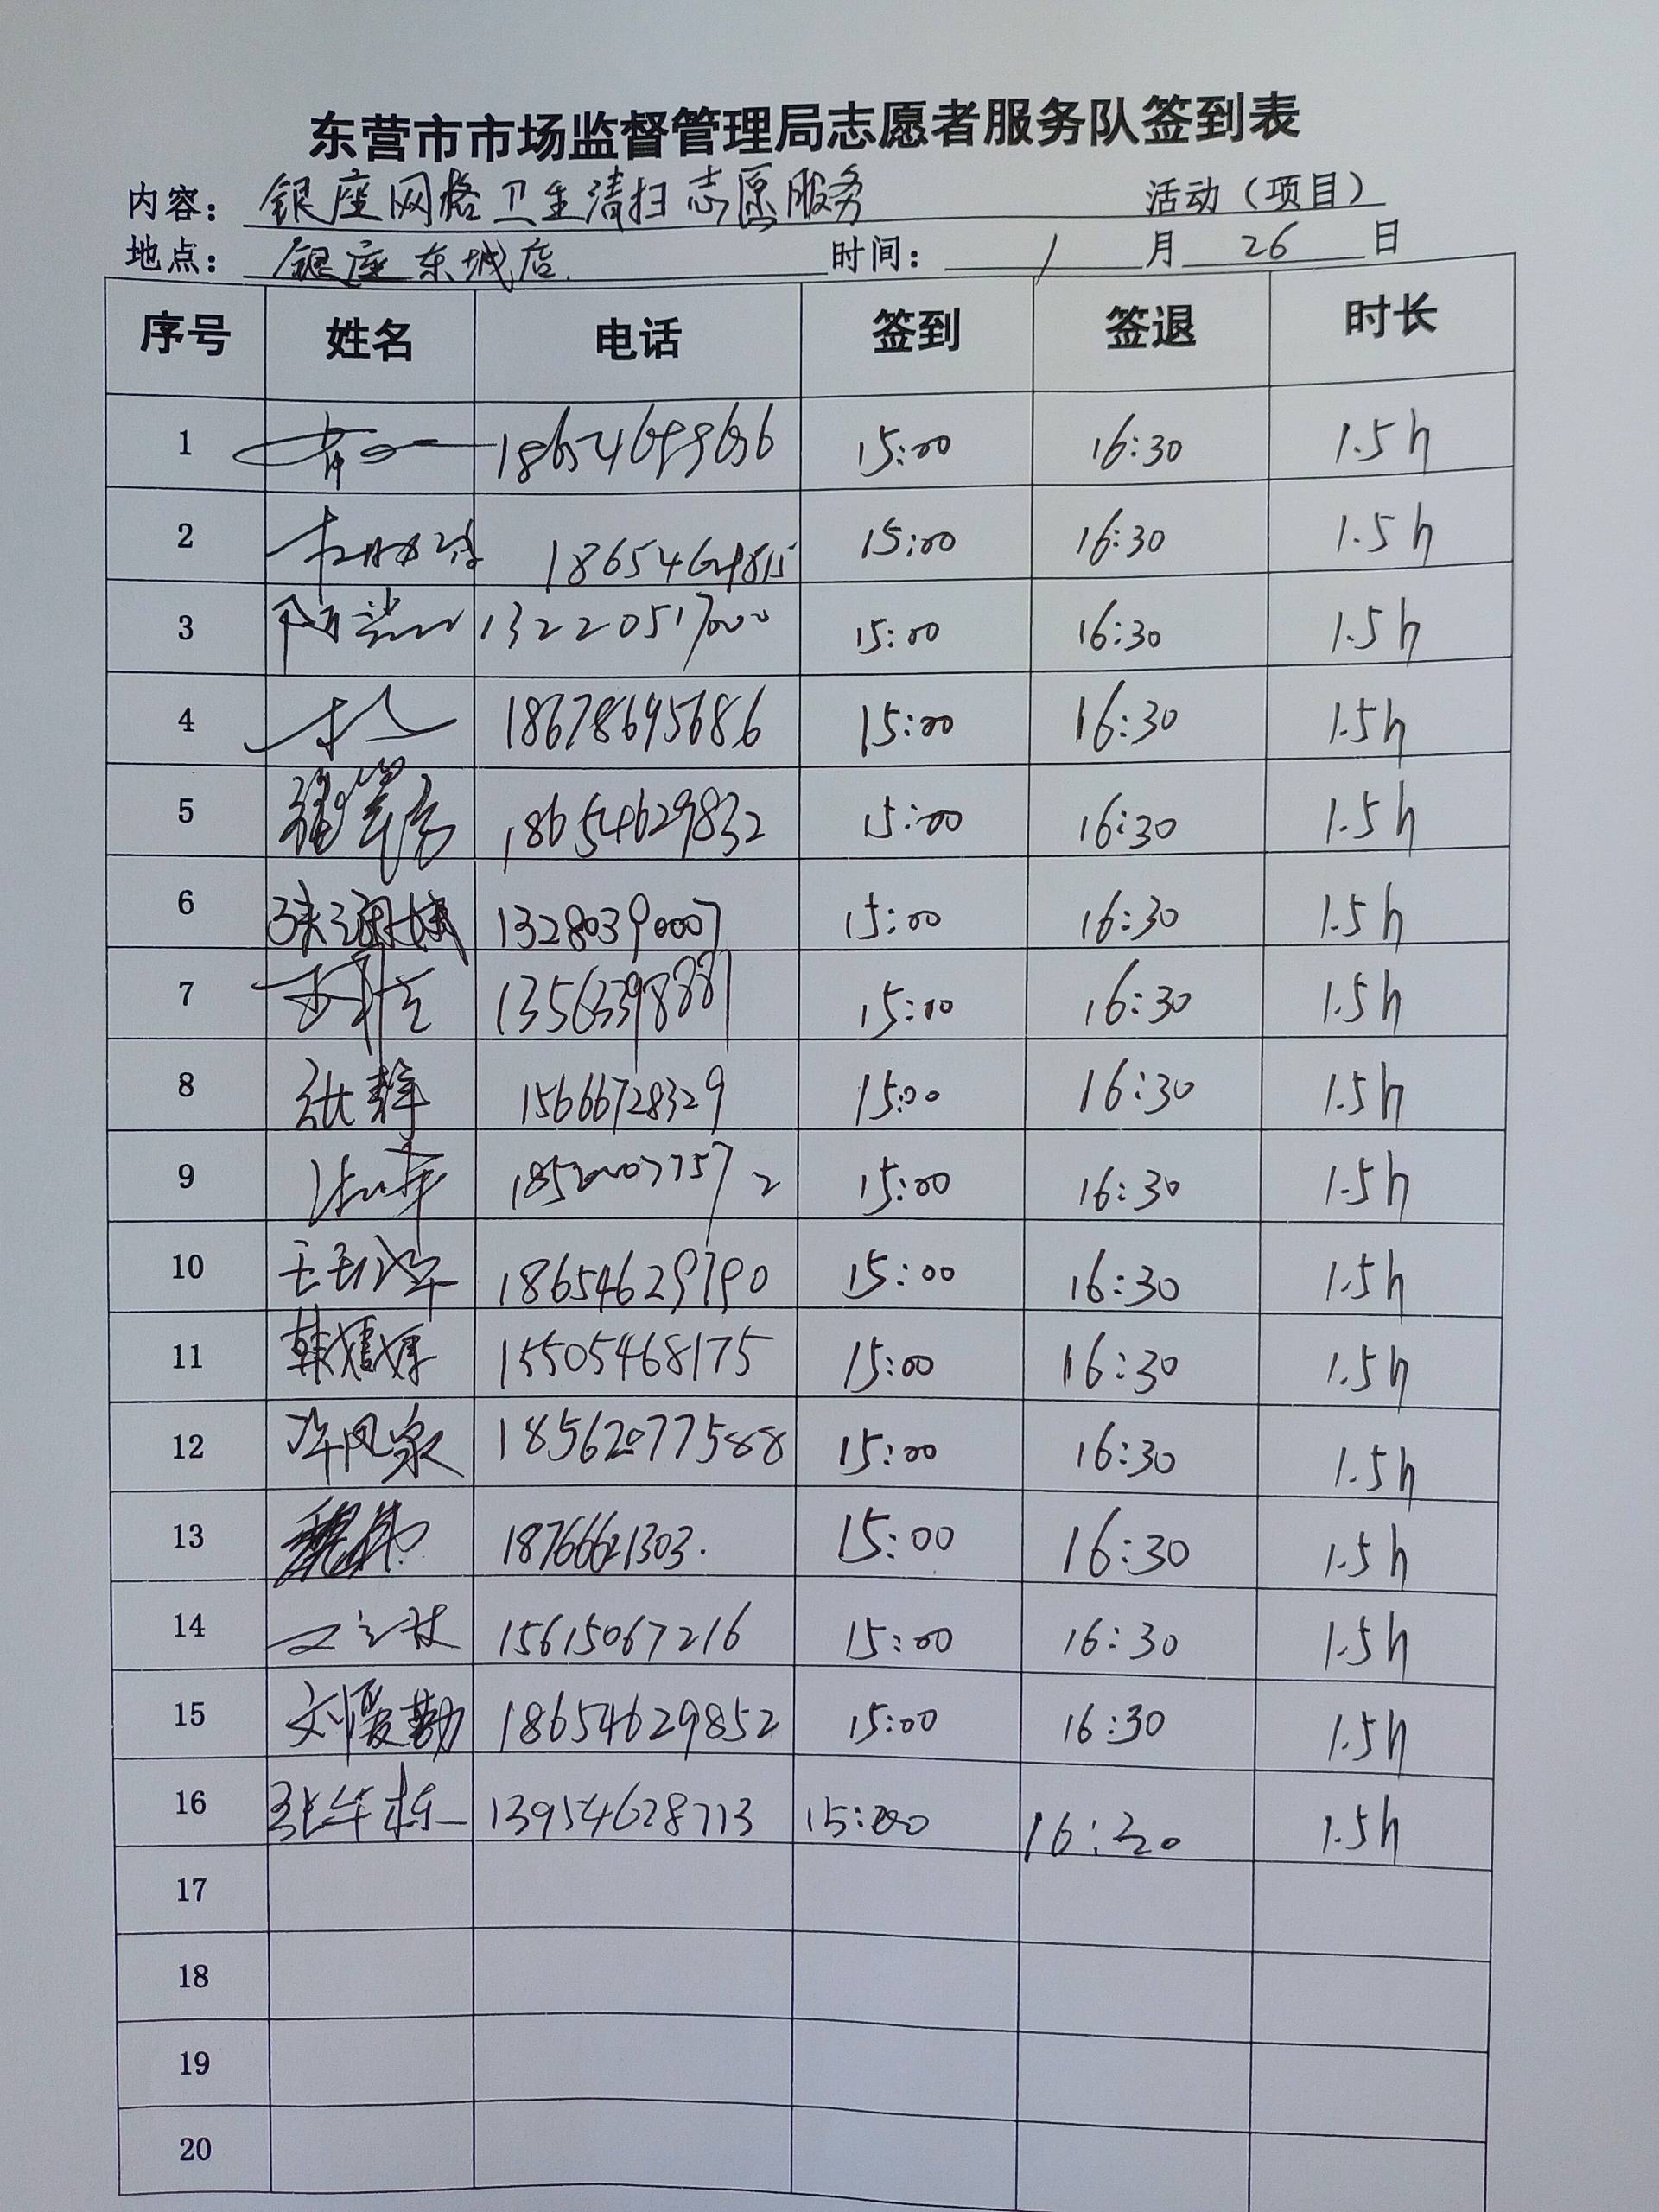 东营市市场监督管理局志愿者服务队签到表
内容: 银座网格卫生清扫志愿服务 活动(项目)
地点: 银座东城店 时间: 1 月 26 日
序号 姓名 电话 签到 签退 时长
1 15:00 16:30 1.5h
2 15:00 16:30 1.5h
3 13220517000 15:00 16:30 1.5h
4 18678695686 15:00 16:30 1.5h
5 18654629832 15:00 16:30 1.5h
6 13280390007 15:00 16:30 1.5h
7 15:00 16:30 1.5h
8 张静 15666728329 15:00 16:30 1.5h
9 15:00 16:30 1.5h
10 18654629790 15:00 16:30 1.5h
11 15505468175 15:00 16:30 1.5h
12 许凤泉 18562077588 15:00 16:30 1.5h
13 18766621303. 15:00 16:30 1.5h
14 15615067216 15:00 16:30 1.5h
15 刘爱勤 18654629852 15:00 16:30 1.5h
16 张华栋 13954628713 15:00 16:30 1.5h
17
18
19
20